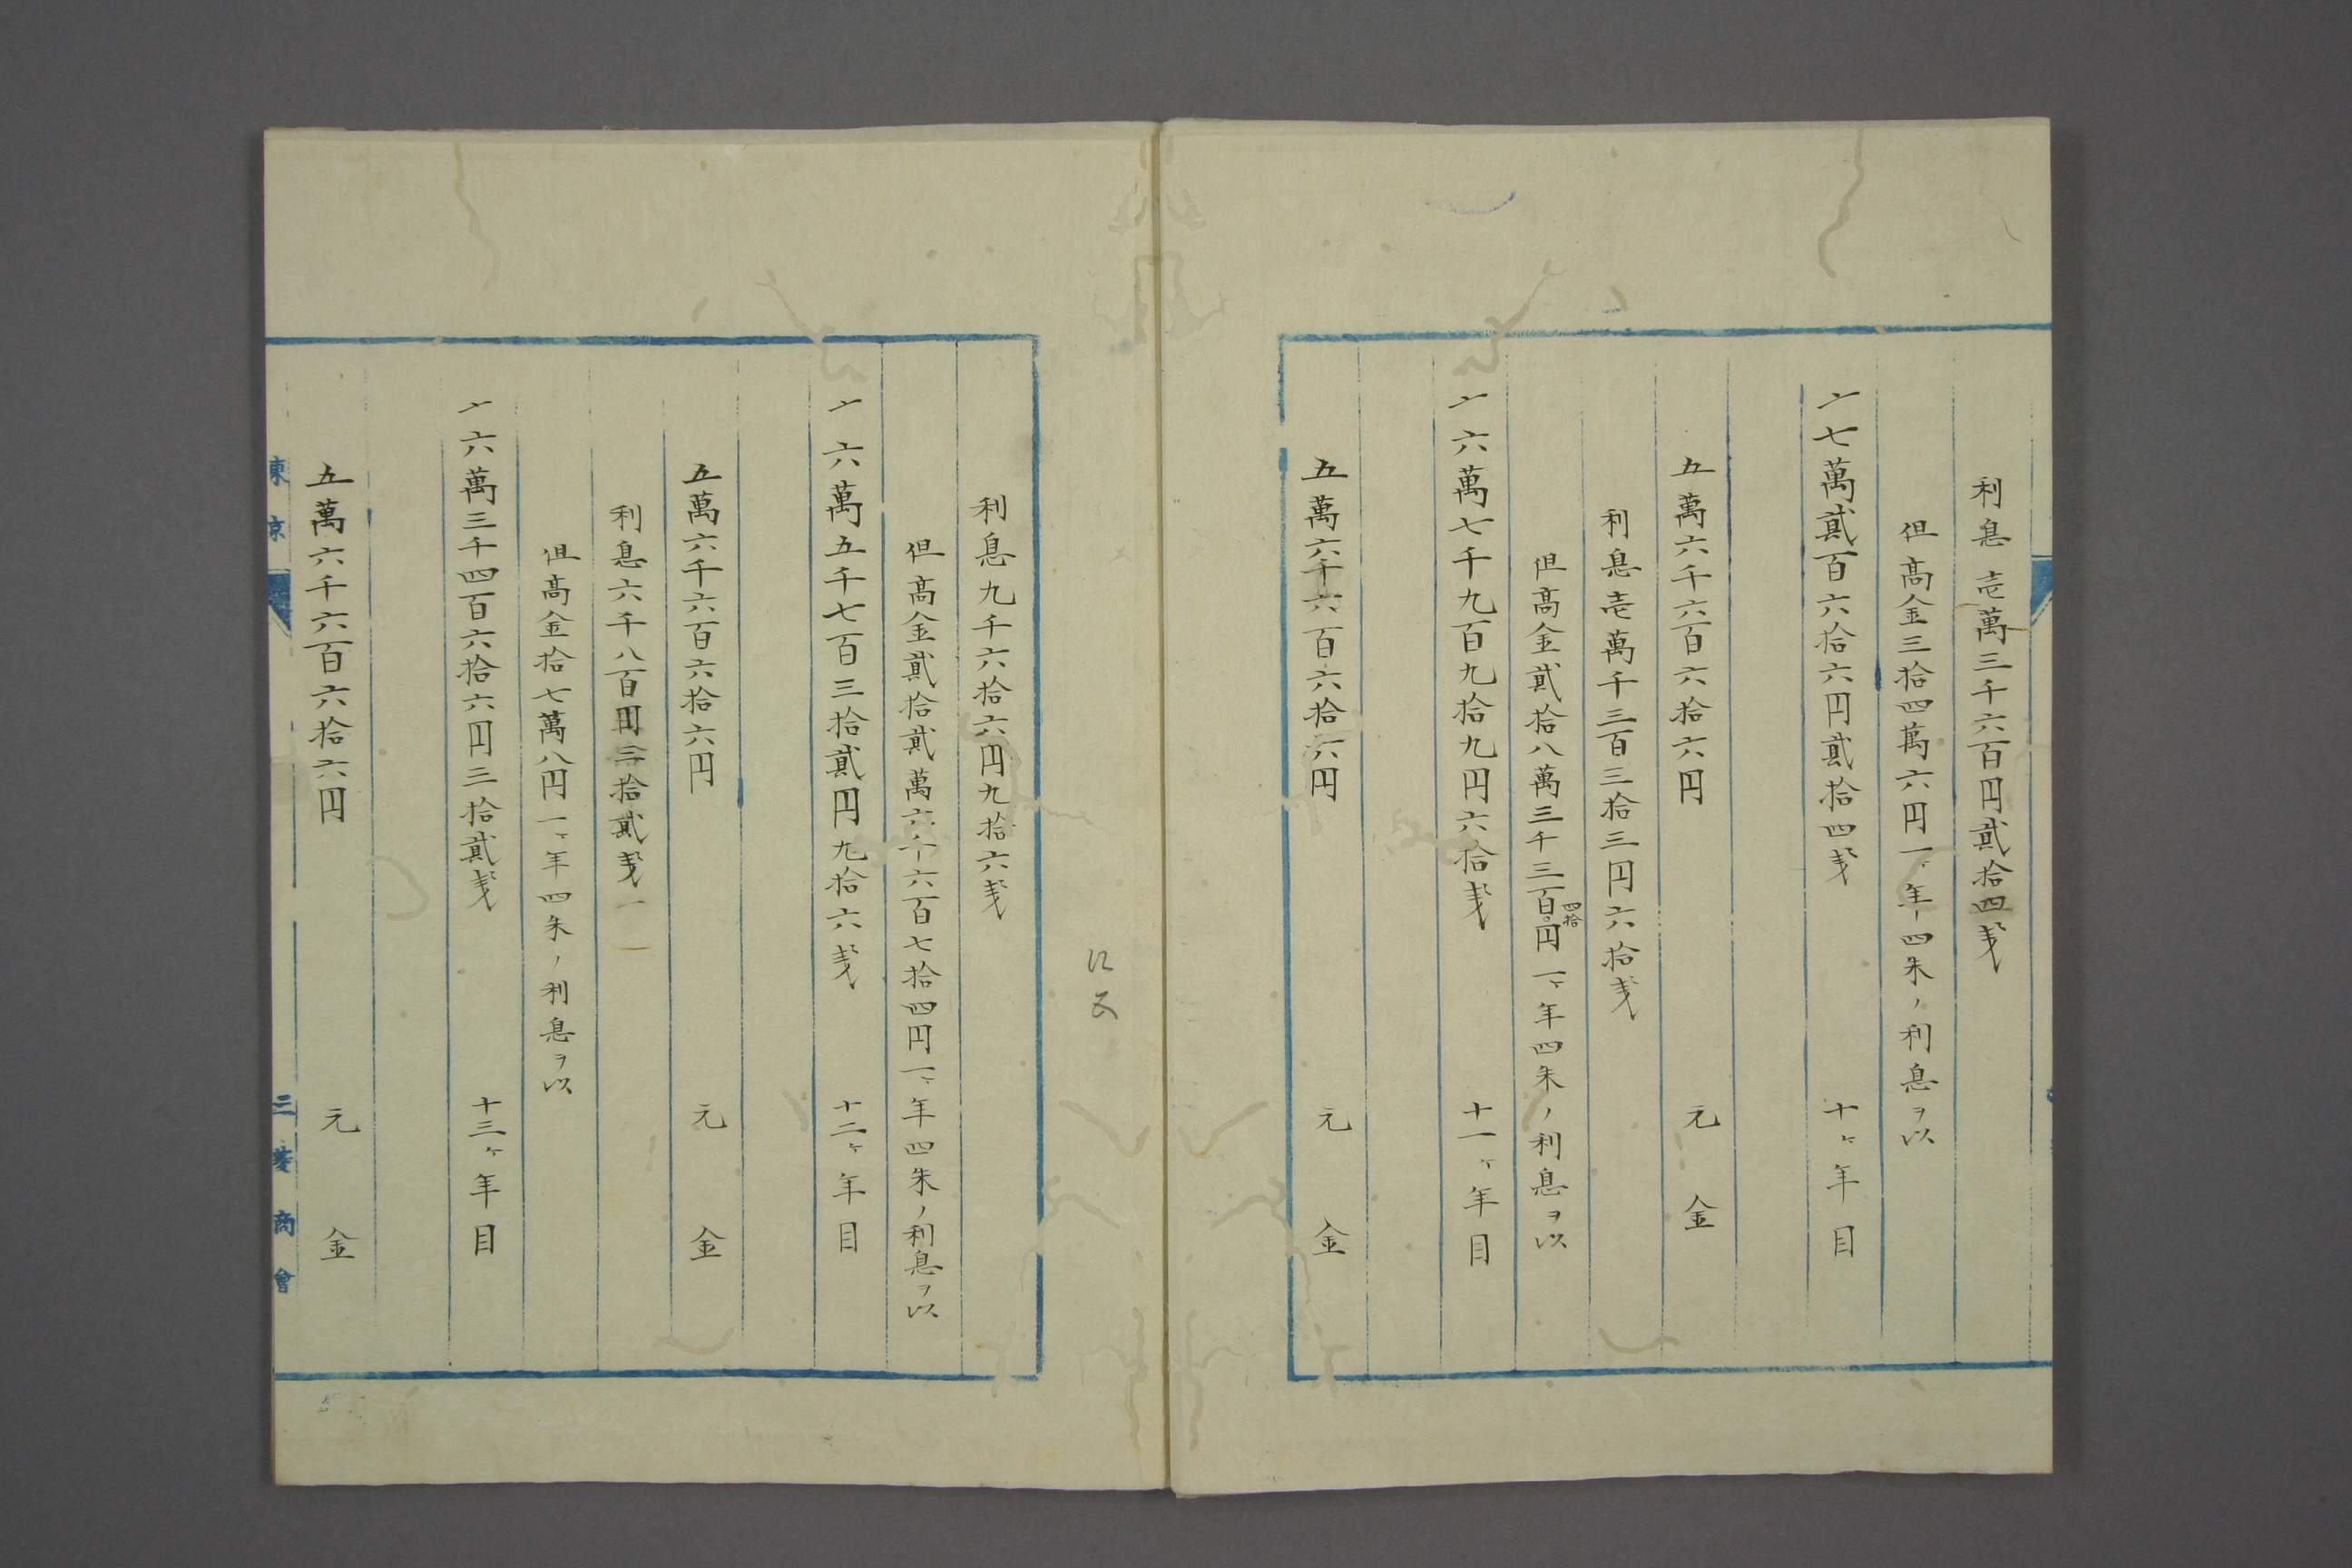 利息壱萬三千六百円貳拾四戔
但高金三拾四萬六円一ヶ年四朱ノ利息ヲ以
一七萬貳百六拾六円貳拾四戔 十ヶ年目
五萬六千六百六拾六円 元金
利息壱萬千三百三拾三円六拾戔
但高金貳拾八萬三千三百四拾円一ヶ年四朱ノ利息ヲ以
一六萬七千九百九拾九円六拾戔 十一ヶ年目
五萬六千六百六拾六円 元金
利息九千六拾六円九拾六戔
但高金貳拾貳萬六千六百七拾四円一ヶ年四朱ノ利息ヲ以
一六萬五千七百三拾貳円九拾六戔 十二ヶ年目
五萬六千六百六拾六円 元金
利息六千八百円三拾貳戔
但高金拾七萬八円一ヶ年四朱ノ利息ヲ以
一六萬三千四百六拾六円三拾貳戔 十三ヶ年目
五萬六千六百六拾六円 元金
東京 三菱商會